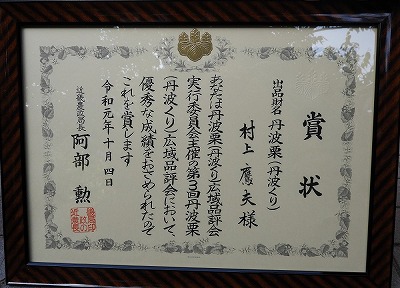 賞状
出品財名 丹波栗(丹波ぐり)
村上 應夫様
あなたは丹波栗(丹波ぐり)広域品評会
実行委員会主催の第3回丹波栗
(丹波ぐり)広域品評会において、
優秀な成績をおさめられたので
これを賞します
令和元年十月四日
近畿農政局長
阿部 勲